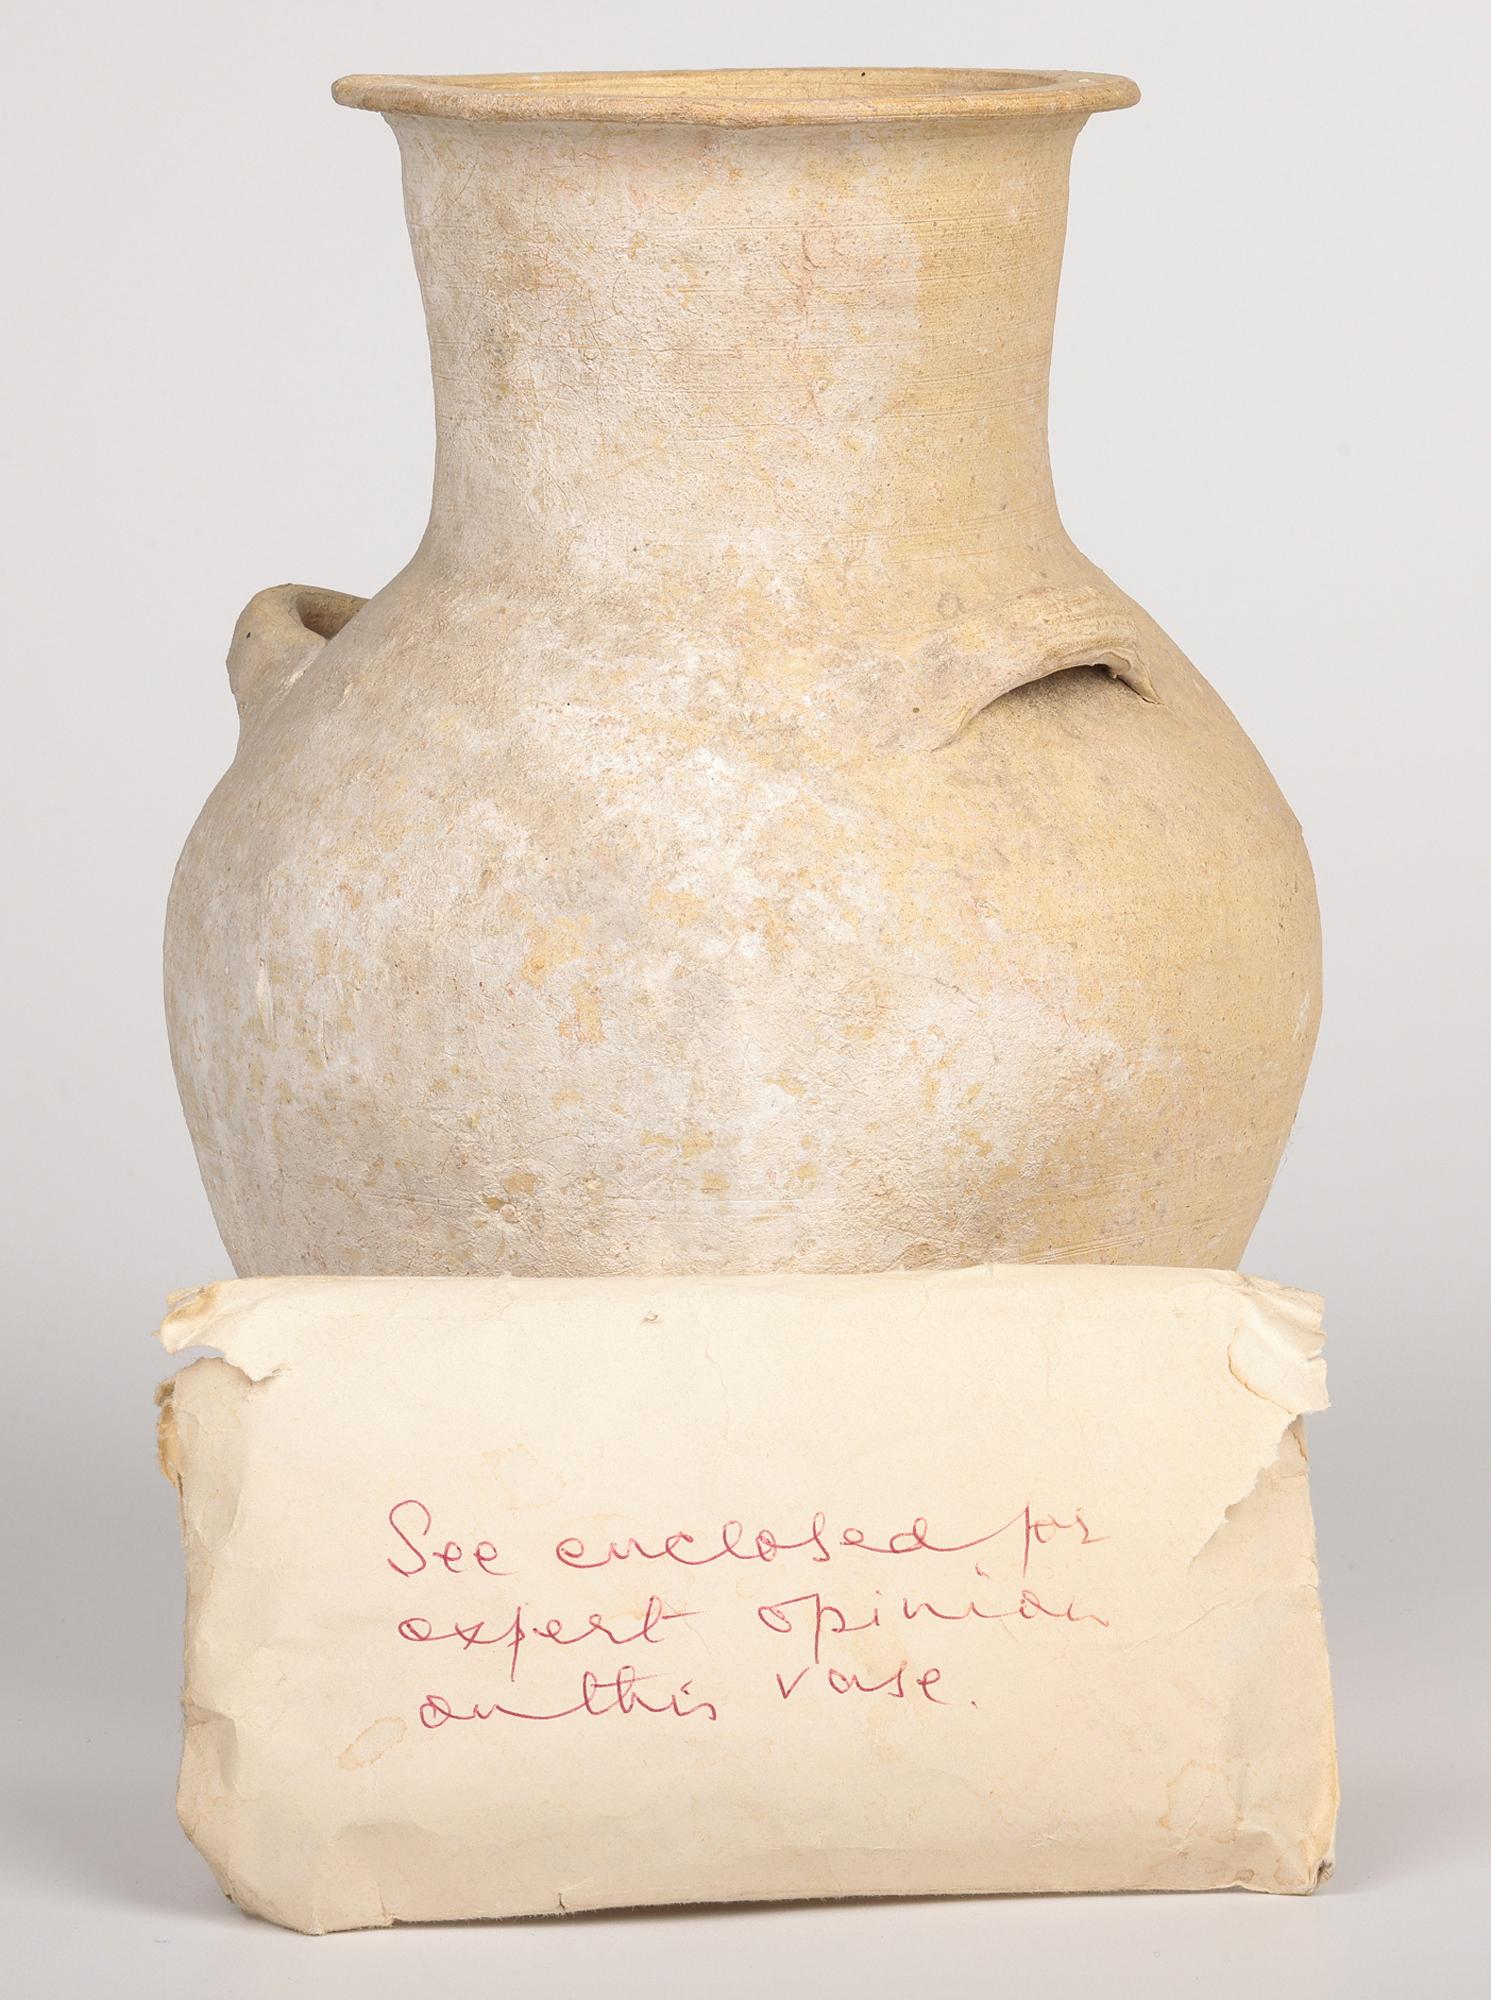 See enclosed for
expert opinion
on this vase.